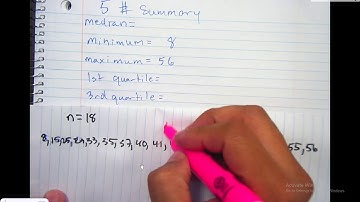 5 # Summary
median=
minimum= 8
maximum= 56
1st quartile=
3rd quartile=
n=18
8,15, 33, 35, 37, 40, 41, 55, 56
Activate